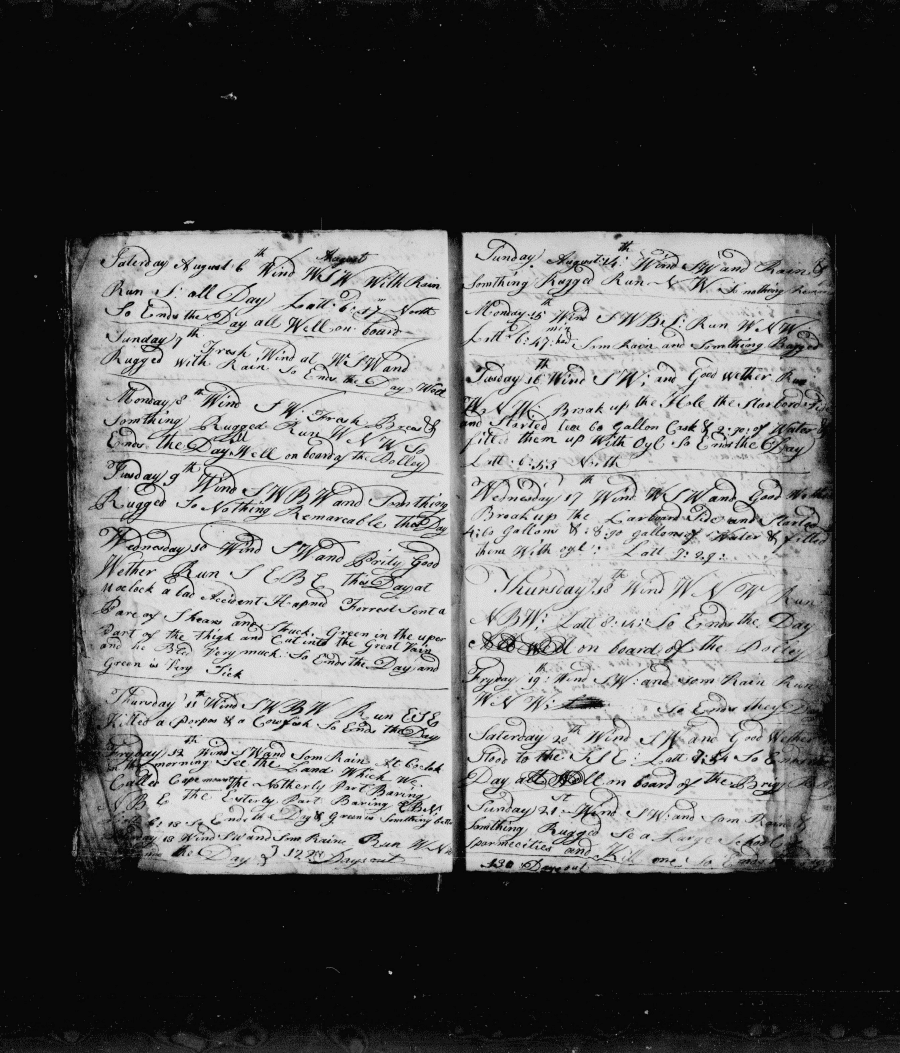 August
Saturday August 6th Wind WSW With Rain
Run S: all Day Latt: 6:17 North
So Ends the Day all Well on board
Sunday 7th Fresh Wind at W:SW and
Rugged With Rain So Ends the Day Well
Monday 8th Wind SW: Fresh Breas &
Somthing Rugged Run W N W So
Ends the Day All Well on board of the Polley
Tusday 9th Wind SWBW and Somthing
Rugged So Nothing Remareable this Day
Wednesday 10 Wind SW and Prity Good
Wether Run S E B E this Day at
oclock a bad Accident Hapned Forrest Sent a
Pare of Shears and Struck Green in the uper
Part of the Thigh and Cut into the Great Vain
and he Bled Very much: So Ends the Day and
Green is Very Sick
Thursday 11th Wind SWBW Run ESE
Killed a Porpos & a Cowfish So Ends the Day
Fryday 12th Wind SW and Som Rain At oclok
in the morning See the Land Which We
Called Cape mount the Notherly Part Baring
N B E the Esterly Part Baring E B N:
6:18 So Ends the Day & Green is Somthing better
13 Wind SW and Som Raine Run W N W
the Day } 122 Days out
Sunday August 14th: Wind SW and Rain &
Somthing Rugged Run N W So nothing
Monday 15th Wind SWBS: Run W N W
Latt 6:47: min Som Rain and Somthing Rugged
Tusday 16th Wind SW; and Good wether Run
W N W: Break up the Hole the Starbord
and Started 60 Gallon Cask & 2:90: of Water &
filed them up With Oyl So Ends the Day
Latt: 6:53 North
Wednesday 17th Wind WSW and Good
Break up the Larboard Side and Started
4:60 Gallons & :8:90 gallons of Water & filled
them With oyl: Latt 7:29:
Thursday 18th Wind W N W Run
NBW: Latt 8: So Ends the Day
well on board of the Polley
Fryday 19th: Wind SW: and som Rain Run
W N W: So Ends they Day
Saturday 20th Wind SW and Good Wether
Stood to the Latt 7:54 So Ends
Day all Well on board of the Brig
Sunday 21st: Wind SW: and Som Rain &
Somthing Rugged Se a Large School
Sparmecities and Kill one So Ends
130 Days out